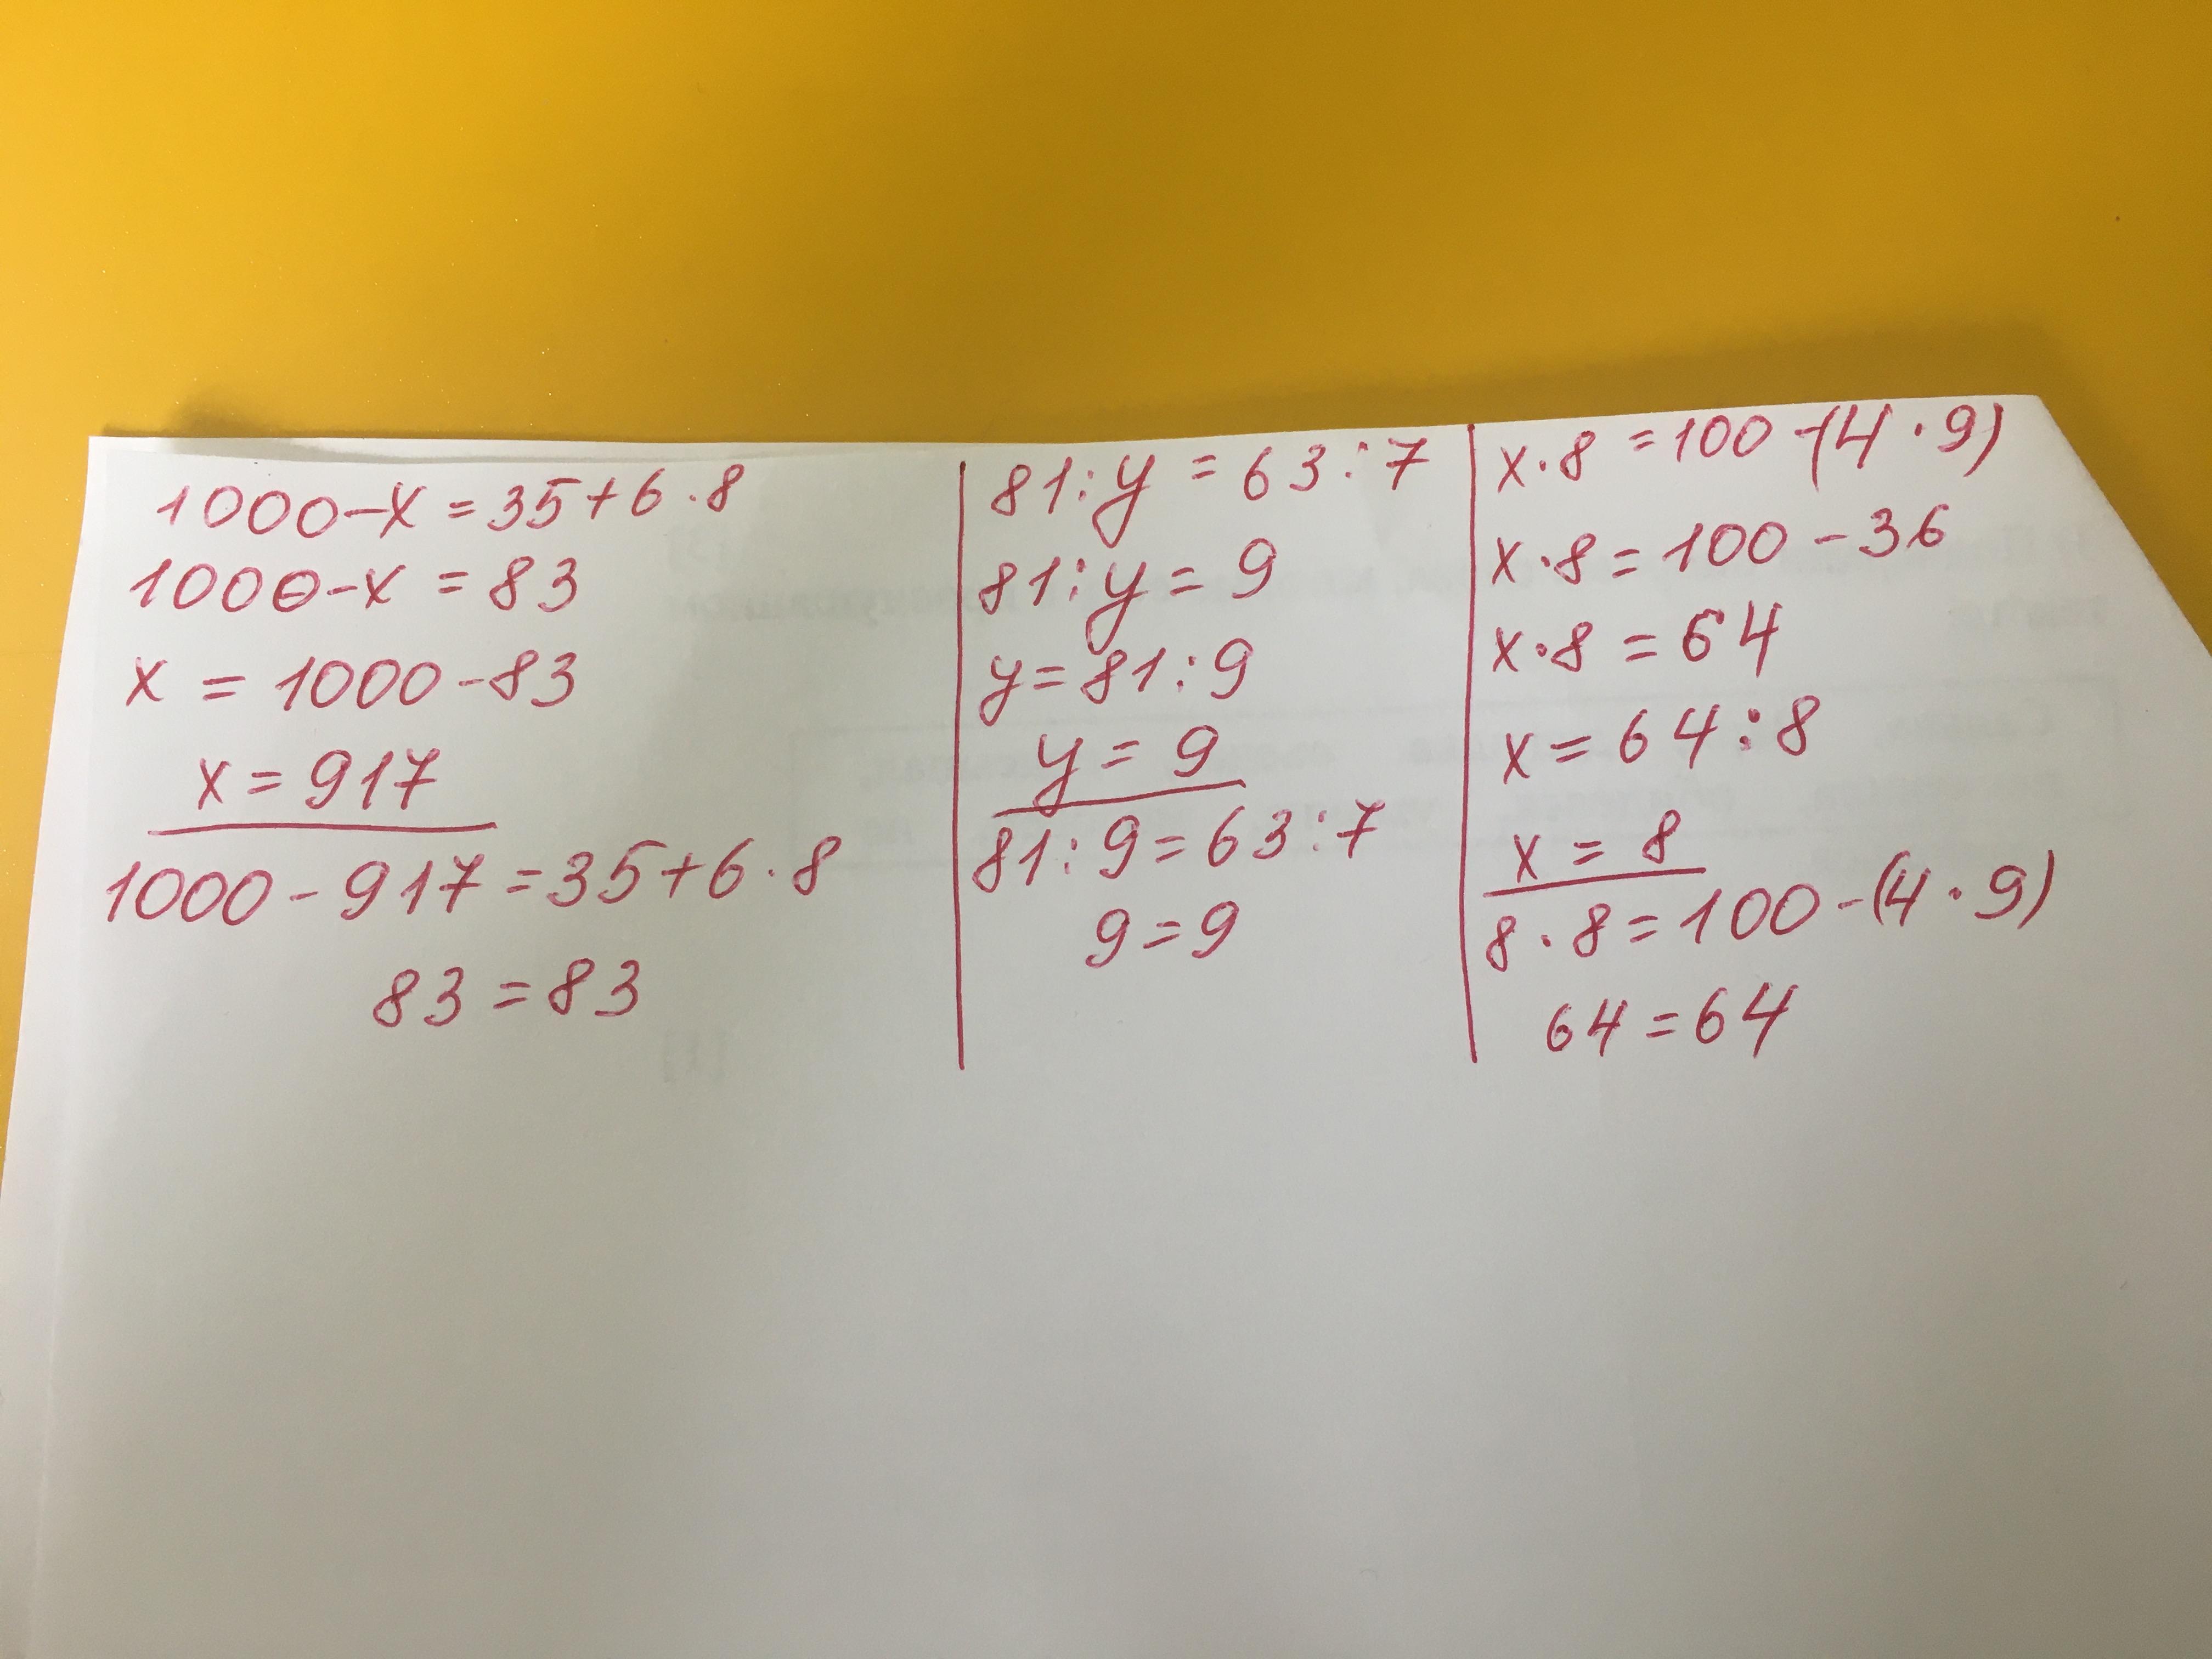 1000-x=35+6·8
1000-x=83
x=1000-83
x=917
1000-917=35+6·8
83=83
81:y=63:7
81:y=9
y=81:9
y=9
81:9=63:7
9=9
x·8=100-(4·9)
x·8=100-36
x·8=64
x=64:8
x=8
8·8=100-(4·9)
64=64